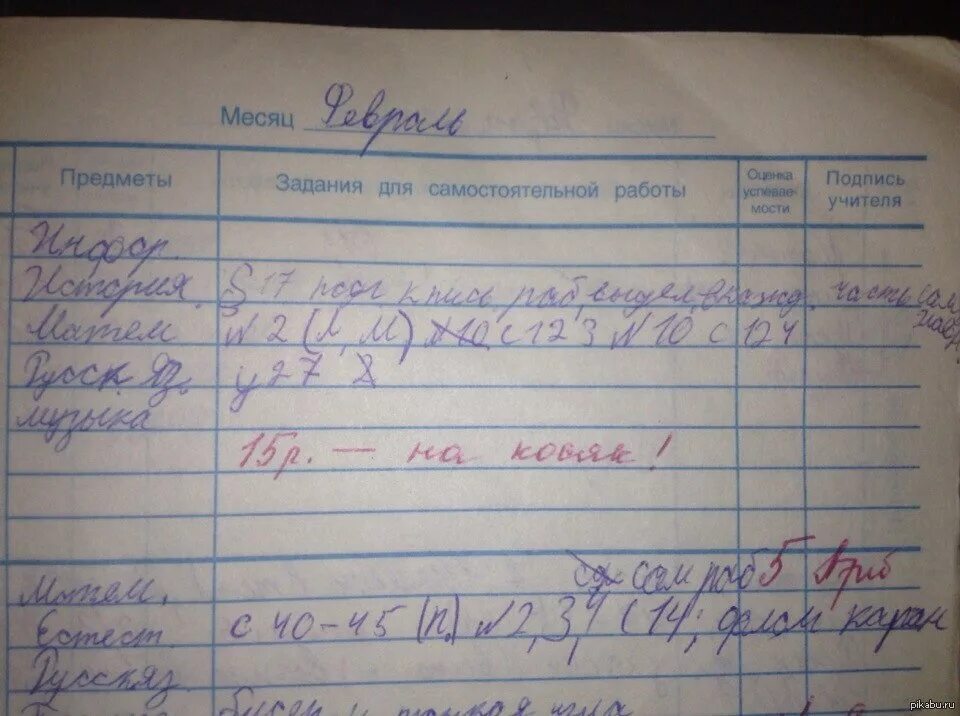 Месяц Февраль
Предметы Задания для самостоятельной работы Оценка успевае- мости Подпись учителя
Инфор.
История. § 17 подг к пись раб, выдел, в кажд. часть
Матем N 2 (Л, М) N10 с 123 N 10 с 124
Русск яз. у 27
музыка
15р. — на косяк!
Матем. сам раб 5
Естест с 40-45 (п.) N2,3,4 с 14;
Русск яз
pikabu.ru